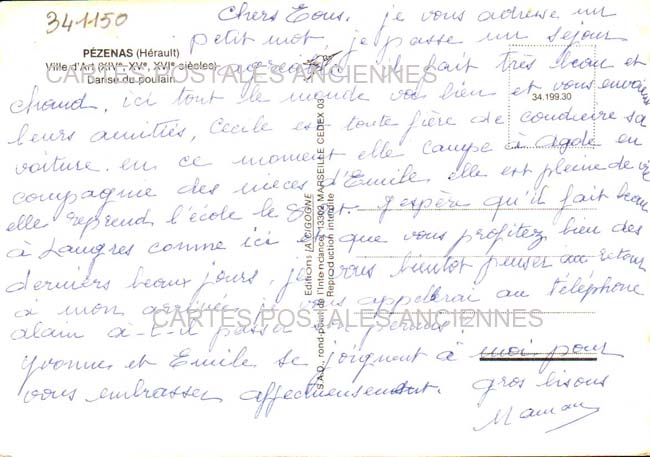 341150
Chers Tous, je vous adresse un
petit mot, je passe un séjour
PÉZENAS (Hérault)
Ville d'Art (XIVe-XVe, XVIe siècles)
Danse du poulain
agréable, il fait très beau et
CARTES POSTALES ANCIENNES
chaud, ici tout le monde va bien et vous envoient
34.199.30
leurs amitiés, Cécile est toute fière de conduire sa
voiture. en ce moment elle campe à Agde en
compagnie des nièces d'Emile, elle est pleine de vie
elle reprend l'école le 8 J'espère qu'il fait beau
à Langres comme ici et que vous profitez bien des
derniers beaux jours, je vais bientot penser au retour
à mon arrivée je vous appellerai au téléphone
CARTES POSTALES ANCIENNES
alain a-t-il passer son permis?
Yvonne et Emile se joignent à moi pour
vous embrasser affectueusement. gros bisous
Maman
Editions LA CIGOGNE
S.A.D. rond-point de l'Intendance, 13302 MARSEILLE CEDEX 03
Reproduction interdite